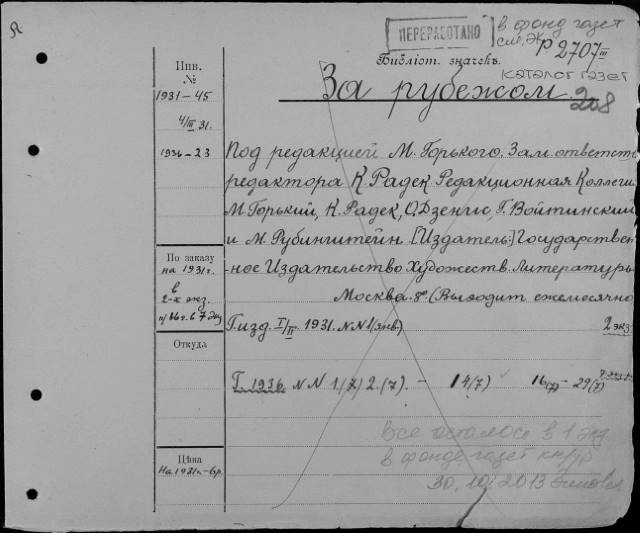 ПЕРЕРАБОТАНО
в фонд газет
см. ЭК
Р 2707 III
каталог газет
Библіот. значекъ.
За рубежом
208
Инв.
№
1931-45
4/III 31.
1936-23
Под редакцией М. Горького. Зам. ответств
редактора К. Радек. Редакционная Коллеги
М. Горький, К. Радек, О. Дзенис, Г. Войтинский
и М. Рубинштейн. [Издатель:] Государствен
ное Издательство Художеств. Литературы
Москва. 8° (Выходит ежемесячно
По заказу
на 1931 г.
в
2-х экз.
Г. изд. I/II 1931. NN 1 (янв)
2 экз
Откуда
Г. 1936. NN 1(7) 2.(7). - 14(7) - 29(7)
Все осталось в 1 экз.
в фонде газет
30.10.2013
Цѣна
На 1931г-6р.